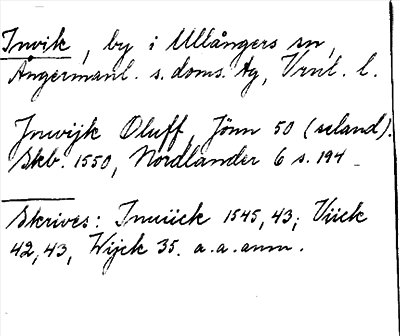 Invik, by i Ullångers sn,
Ångermanl. s. doms. tg, Vrnl. l.
Inwijk Oluff, Jönn 50 (seland).
Skb. 1550, Nordlander 6 s. 194
Skrives: Inwiick 1545, 43; Viick
42, 43, Wijck 35. a. a. anm.